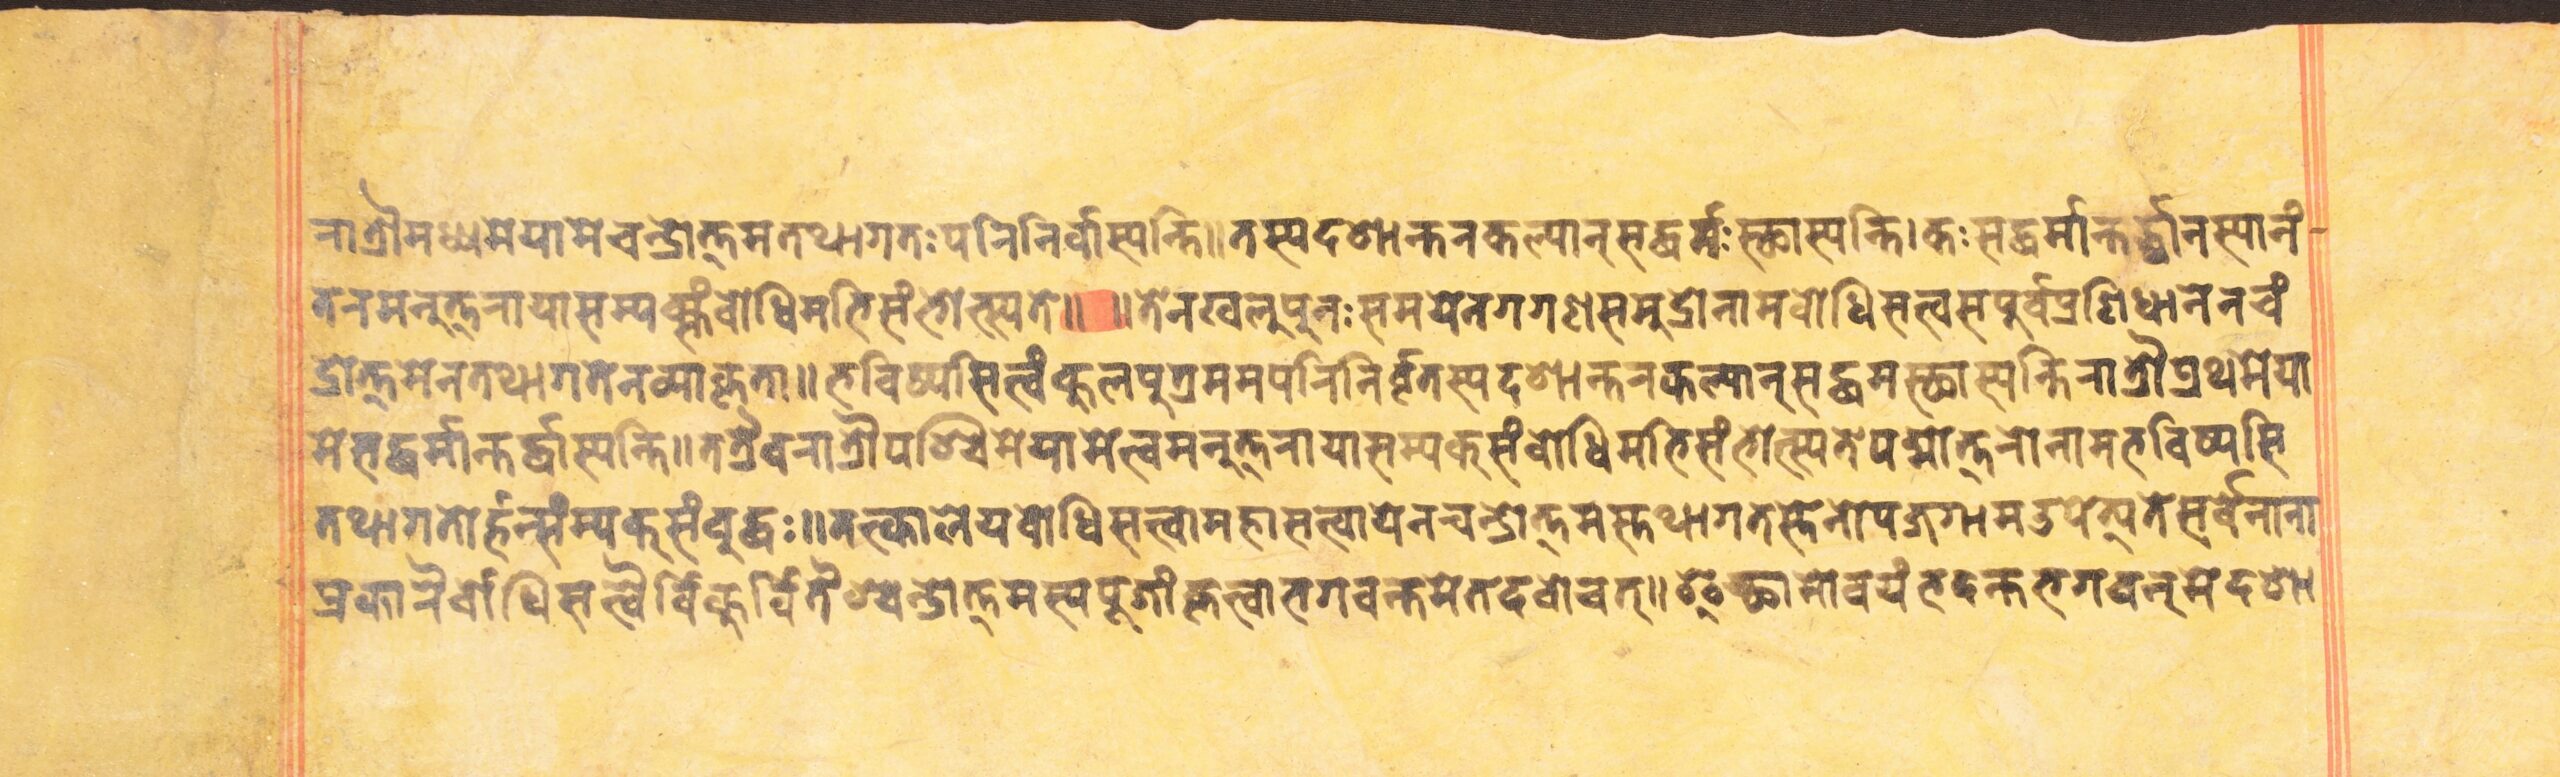 रात्रौमध्यमेयामेचन्द्रोत्तमतथागतःपरिनिर्वास्यन्ति॥तस्यदशान्तरकल्पान्सद्धर्मःस्थास्यन्ति।कःसद्धर्मान्तर्द्धानस्यानं-
तरमनुत्तरायासम्यक्संबोधिमभिसंभोत्स्यते॥ ॥तेनखलुपुनःसमयेनगगणसमुद्रोनामबोधिसत्वसपुर्वप्रणिधानेनचं
द्रोत्तमेनतथागतेनव्याकृता॥भविष्यसित्वंकुलपुत्रममपरिनिर्वृतस्यदशान्तरकल्पान्सद्धमस्थास्यन्तिरात्रौप्रथमेया
मेसद्धर्मान्तर्द्धास्यन्ति॥तत्रैवरात्रौपश्चिमेयामेत्वमनुत्तरायासम्यक्संबोधिमभिसंभोत्स्यतेपद्मोत्तरोनामभविष्यसि
तथागतोर्हन्संम्यक्संबुद्धः॥तत्कालेयबोधिसत्त्वामहासत्वायेनचन्द्रोत्तमस्तथागतस्तेनोपजगामउपेत्यतेसर्वेनाना
प्रकारैर्बोधिसत्वैर्विकुर्वितैश्चन्द्रोत्तमस्यपूजांकृत्वाभगवन्तमेतदवोचत्॥इच्छामोवयंभदन्तभगवन्मेदशा